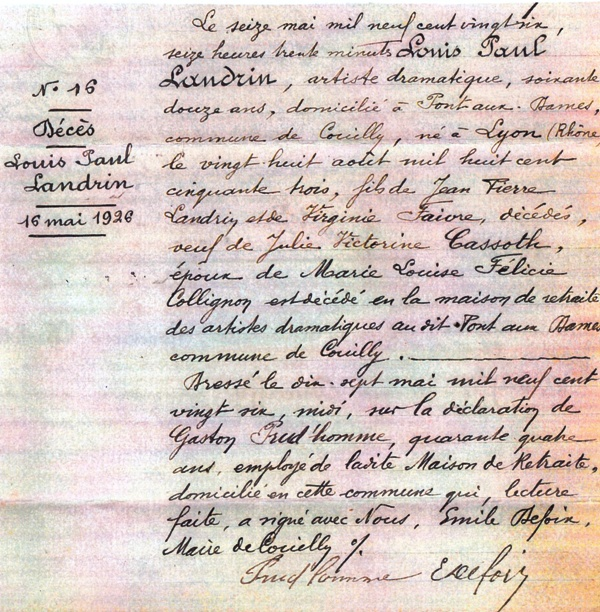 N° 16
Décès
Louis Paul
Landrin
16 mai 1926
Le seize mai mil neuf cent vingt six,
seize heures trente minutes Louis Paul
Landrin, artiste dramatique, soixante
douze ans, domicilié à Pont aux Dames,
commune de Couilly, né à Lyon (Rhône)
le vingt huit août mil huit cent
cinquante trois, fils de Jean Pierre
Landrin et de Virginie Faivre, décédés,
veuf de Julie Victorine Cassoth,
époux de Marie Louise Félicie
Collignon est décédé en la maison de retraite
des artistes dramatiques au dit Pont aux Dames
commune de Couilly.
Dressé le dix-sept mai mil neuf cent
vingt six, midi, sur la déclaration de
Gaston Prud'homme, quarante quatre
ans, employé de ladite Maison de Retraite,
domicilié en cette commune qui, lecture
faite, a signé avec Nous, Emile Defoix,
Maire de Couilly %.
Prud'homme EDefoix